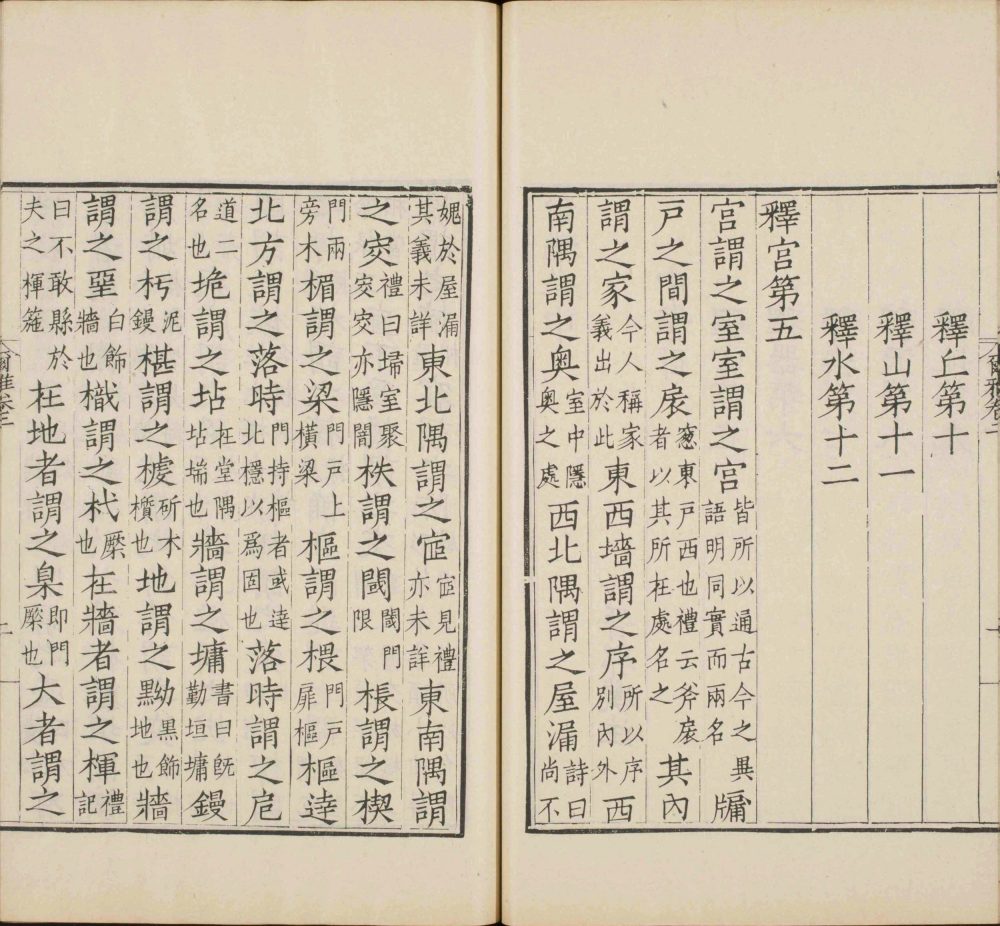 釋丘第十
釋山第十一
釋水第十二
釋宫第五
宫謂之室室謂之宫皆所以通古今之異語明同實而兩名牖
戶之間謂之扆窻東戶西也禮云斧扆者以其所在處名之其內
謂之家今人稱家義出於此東西墻謂之序所以序別內外西
南隅謂之奧室中隱奧之處西北隅謂之屋漏詩曰尚不
媿於屋漏其義未詳東北隅謂之宧宧見禮亦未詳東南隅謂
之㝔禮曰埽室聚㝔㝔亦隱闇柣謂之閾閾門限棖謂之楔
門兩旁木楣謂之梁門戶上橫梁樞謂之椳門戶扉樞樞達
北方謂之落時門持樞者或達北檼以爲固也落時謂之戹
道二名也垝謂之坫在堂隅坫㙐也牆謂之墉書曰旣勤垣墉鏝
謂之杇泥鏝椹謂之榩斫木櫍也地謂之黝黑飾地也牆
謂之堊白飾牆也樴謂之杙橜也在牆者謂之楎禮記
曰不敢縣於夫之楎箷在地者謂之臬即門橜也大者謂之